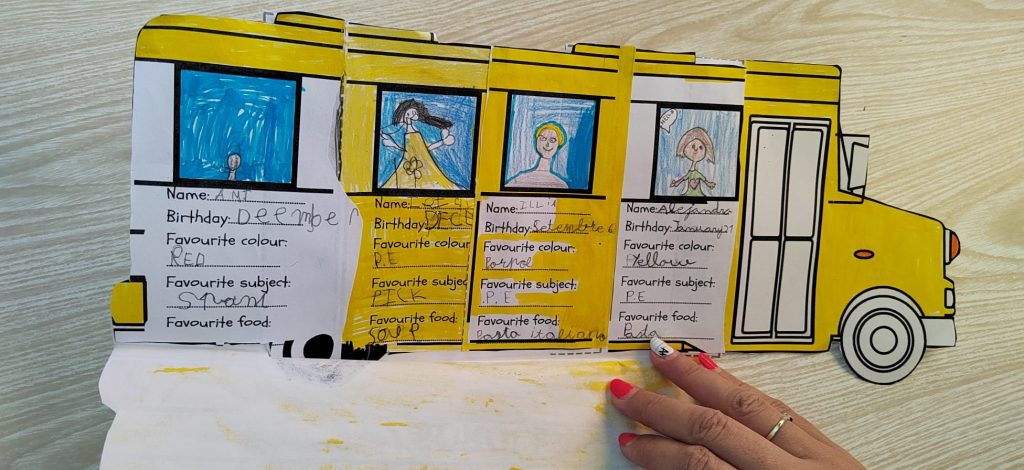 HELLO
Name: ANT
Birthday: Deember
Favourite colour:
RED
Favourite subject:
Spanl
Favourite food:
Name:
Birthday: DECE
Favourite colour
P.E
Favourite subjec
PICK
Favourite food:
SOUP
Name: ILLIA
Birthday: Setembre 6
Favourite colour:
Porpol
Favourite subject:
P.E
Favourite food:
Pasta italiana
Name: Alejandra
Birthday: January 21
Favourite colour:
Yellow
Favourite subject:
P.E
Favourite food:
Pasta